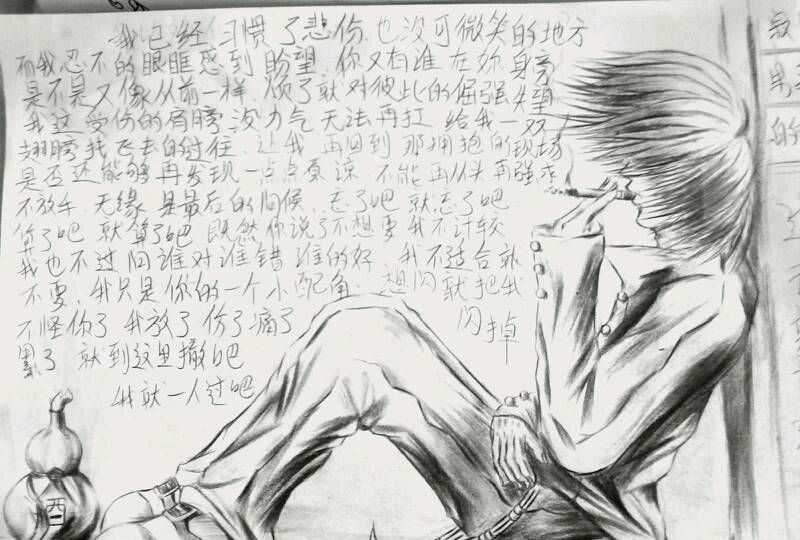 我已经习惯了悲伤 也没可微笑的地方
而我忍不的眼眶感到盼望 你又有谁在你身旁
是不是又像从前一样 烦了就对彼此的倔强失望
我这受伤的肩膀没力气 无法再扛 给我一双
翅膀找飞去的过往 让我再回到那拥抱的现场
是否还能够再发现一点点原谅 不能再从头再强求
不放手 无缘是最后的问候 忘了吧 就忘了吧
算了吧 就算了吧 既然你说了不想要 我不计较
我也不过问谁对谁错 谁的好 我不适合就
不要 我只是你的一个小配角 想闪就把我
闪掉
不怪你了 我放了 伤了痛了
累了 就到这里撤吧
我就一人过吧
酒
的